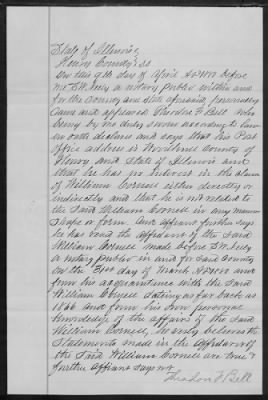 State of Illinois
Henry County SS
On this 9th day of April before
me a notary public within and
for the County and State aforesaid personally
Came and appeared Theodore F Bell who
being by me duly sworn according to law
on oath declares and says that his Post
office address is Woodhull County of
Henry and State of Illinois and
that he has no interest in the claim
of William Cornell either directly or
indirectly and that he is not related to
the Said William Cornell in any manner
Shape or form And affiant further says
he has read the affidavit of the Said
William Cornell made before
a notary public in and for said County
on the 31st day of March and
from his acquaintance with the Said
William Cornell dating as far back as
1866 and from his own personal
knowledge of the affairs of the Said
William Cornell, he verily believes the
Statements made in the Affidavit of
the Said William Cornell are true &
further affiant says not
Theodore F Bell